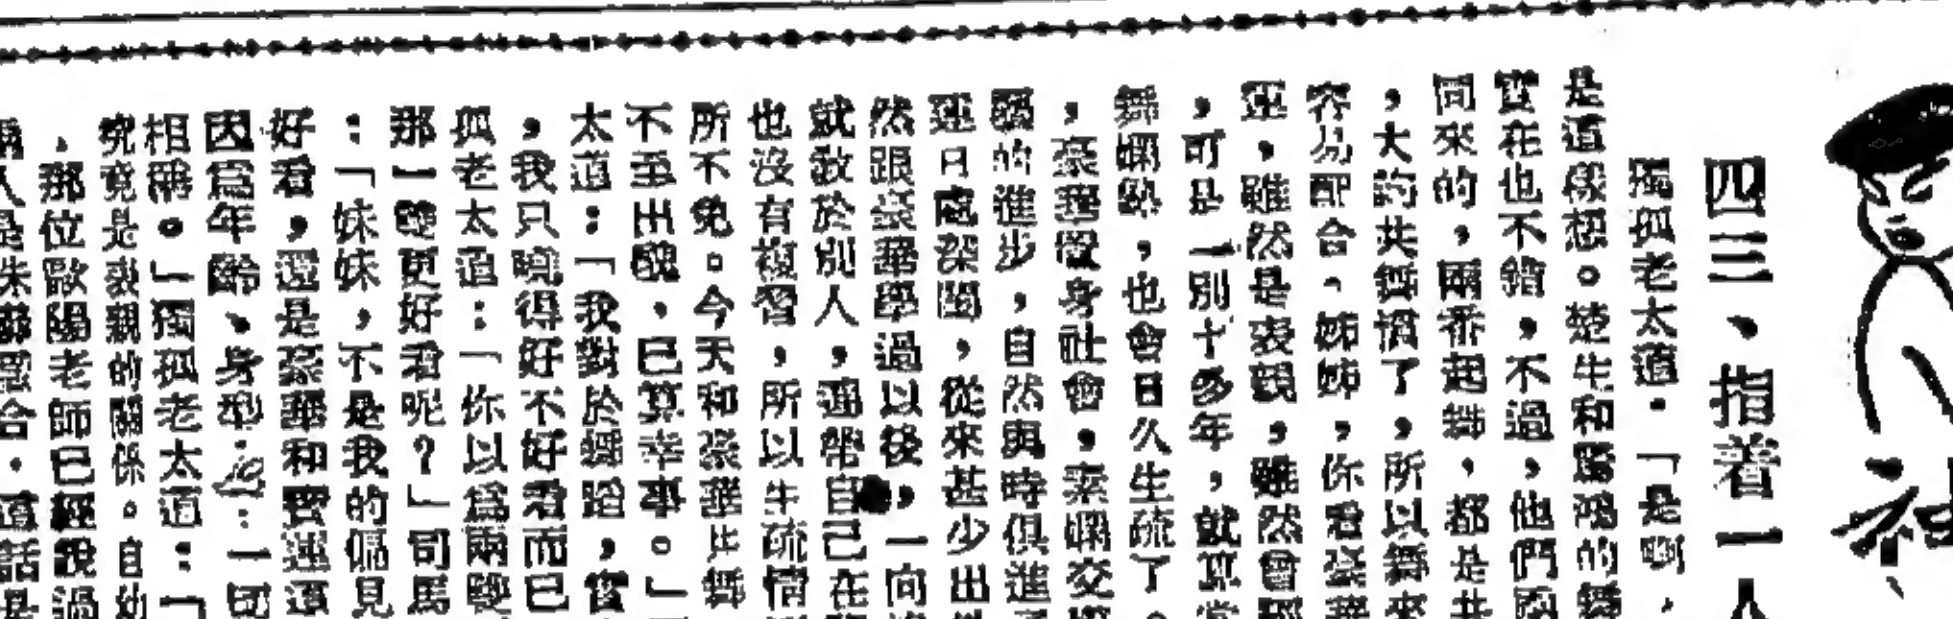 四三、指着一人
獨孤老太道：「是啊，
是這樣想。楚生和驚鴻的舞
實在也不錯，不過，他們兩
同來的，兩番起舞，都是共
，大約共舞慣了，所以舞來
容易配合，姊姊，你看豪華
蓮，雖然是表親，雖然會
，可是一別十多年，就算當
舞嫻熟，也會日久生疏了。
，豪華置身社會，素嫻交際
的進步，自然與時俱進
蓮日處深閨，從來甚少出外
然跟豪華學過以後，一向
就教於別人，連帶自己在
也沒有複習，所以生疏情
所不免。今天和豪華比舞
不至出醜，已算幸事。」
太道：「我對於舞蹈，實
，我只曉得好不好看而已
孤老太道：「你以為兩雙
那一雙更好看呢？」司馬
：「妹妹，不是我的偏見
好看，還是豪華和寶蓮這
因為年齡、身型 一切
相稱。」獨孤老太道：「
究竟是表親的關係。自幼
，那位歐陽老師已經說過
人是朱 合，這話是